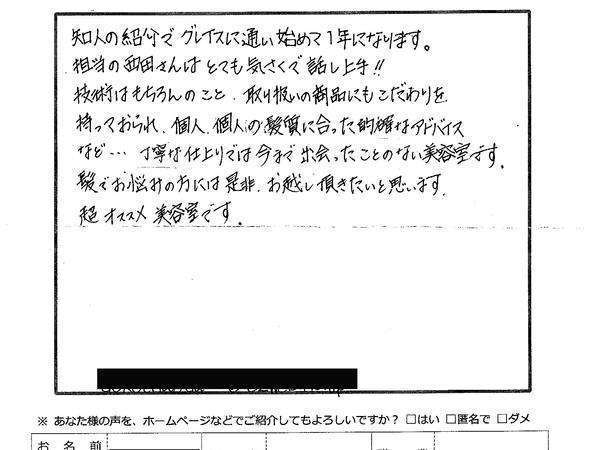 知人の紹介でグレイスに通い始めて1年になります。
担当の西田さんはとても気さくで話し上手!!
技術はもちろんのこと、取り扱いの商品にもこだわりを
持っておられ、個人、個人の髪質に合った的確なアドバイス
など… 丁寧な仕上りでは今まで出会ったことのない美容室です。
髪でお悩みの方には是非、お越し頂きたいと思います。
超オススメ美容室です。
※ あなた様の声を、ホームページなどでご紹介してもよろしいですか？ □はい □匿名で □ダメ
お 名 前